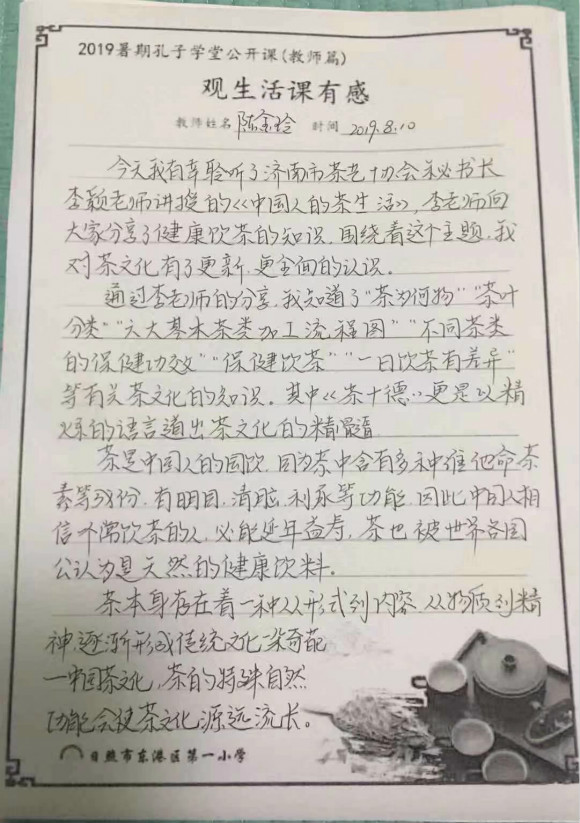 2019暑期孔子学堂公开课(教师篇)
观生活课有感
教师姓名 陈金玲 时间 2019.8.10
今天我有幸聆听了济南市茶艺协会秘书长
李颖老师讲授的《中国人的茶生活》,李老师向
大家分享了健康饮茶的知识.围绕着这个主题,我
对茶文化有了更新.更全面的认识.
通过李老师的分享,我知道了“茶为何物”“茶叶
分类”“六大基本茶类加工流程图”“不同茶类
的保健功效”“保健饮茶”“一日饮茶有差异”
等有关茶文化的知识.其中《茶十德》更是以精
炼的语言道出茶文化的精髓.
茶是中国人的国饮.因为茶中含有多种维他命茶
素等成份.有明目.清脑.利尿等功能.因此中国人相
信外常饮茶的人,必能延年益寿,茶也被世界各国
公认为是天然的健康饮料.
茶本身存在着一种从形式到内容.从物质到精
神逐渐形成传统文化一朵奇葩
一中国茶文化,茶的特殊自然
功能会使茶文化源远流长。
日照市东港区第一小学